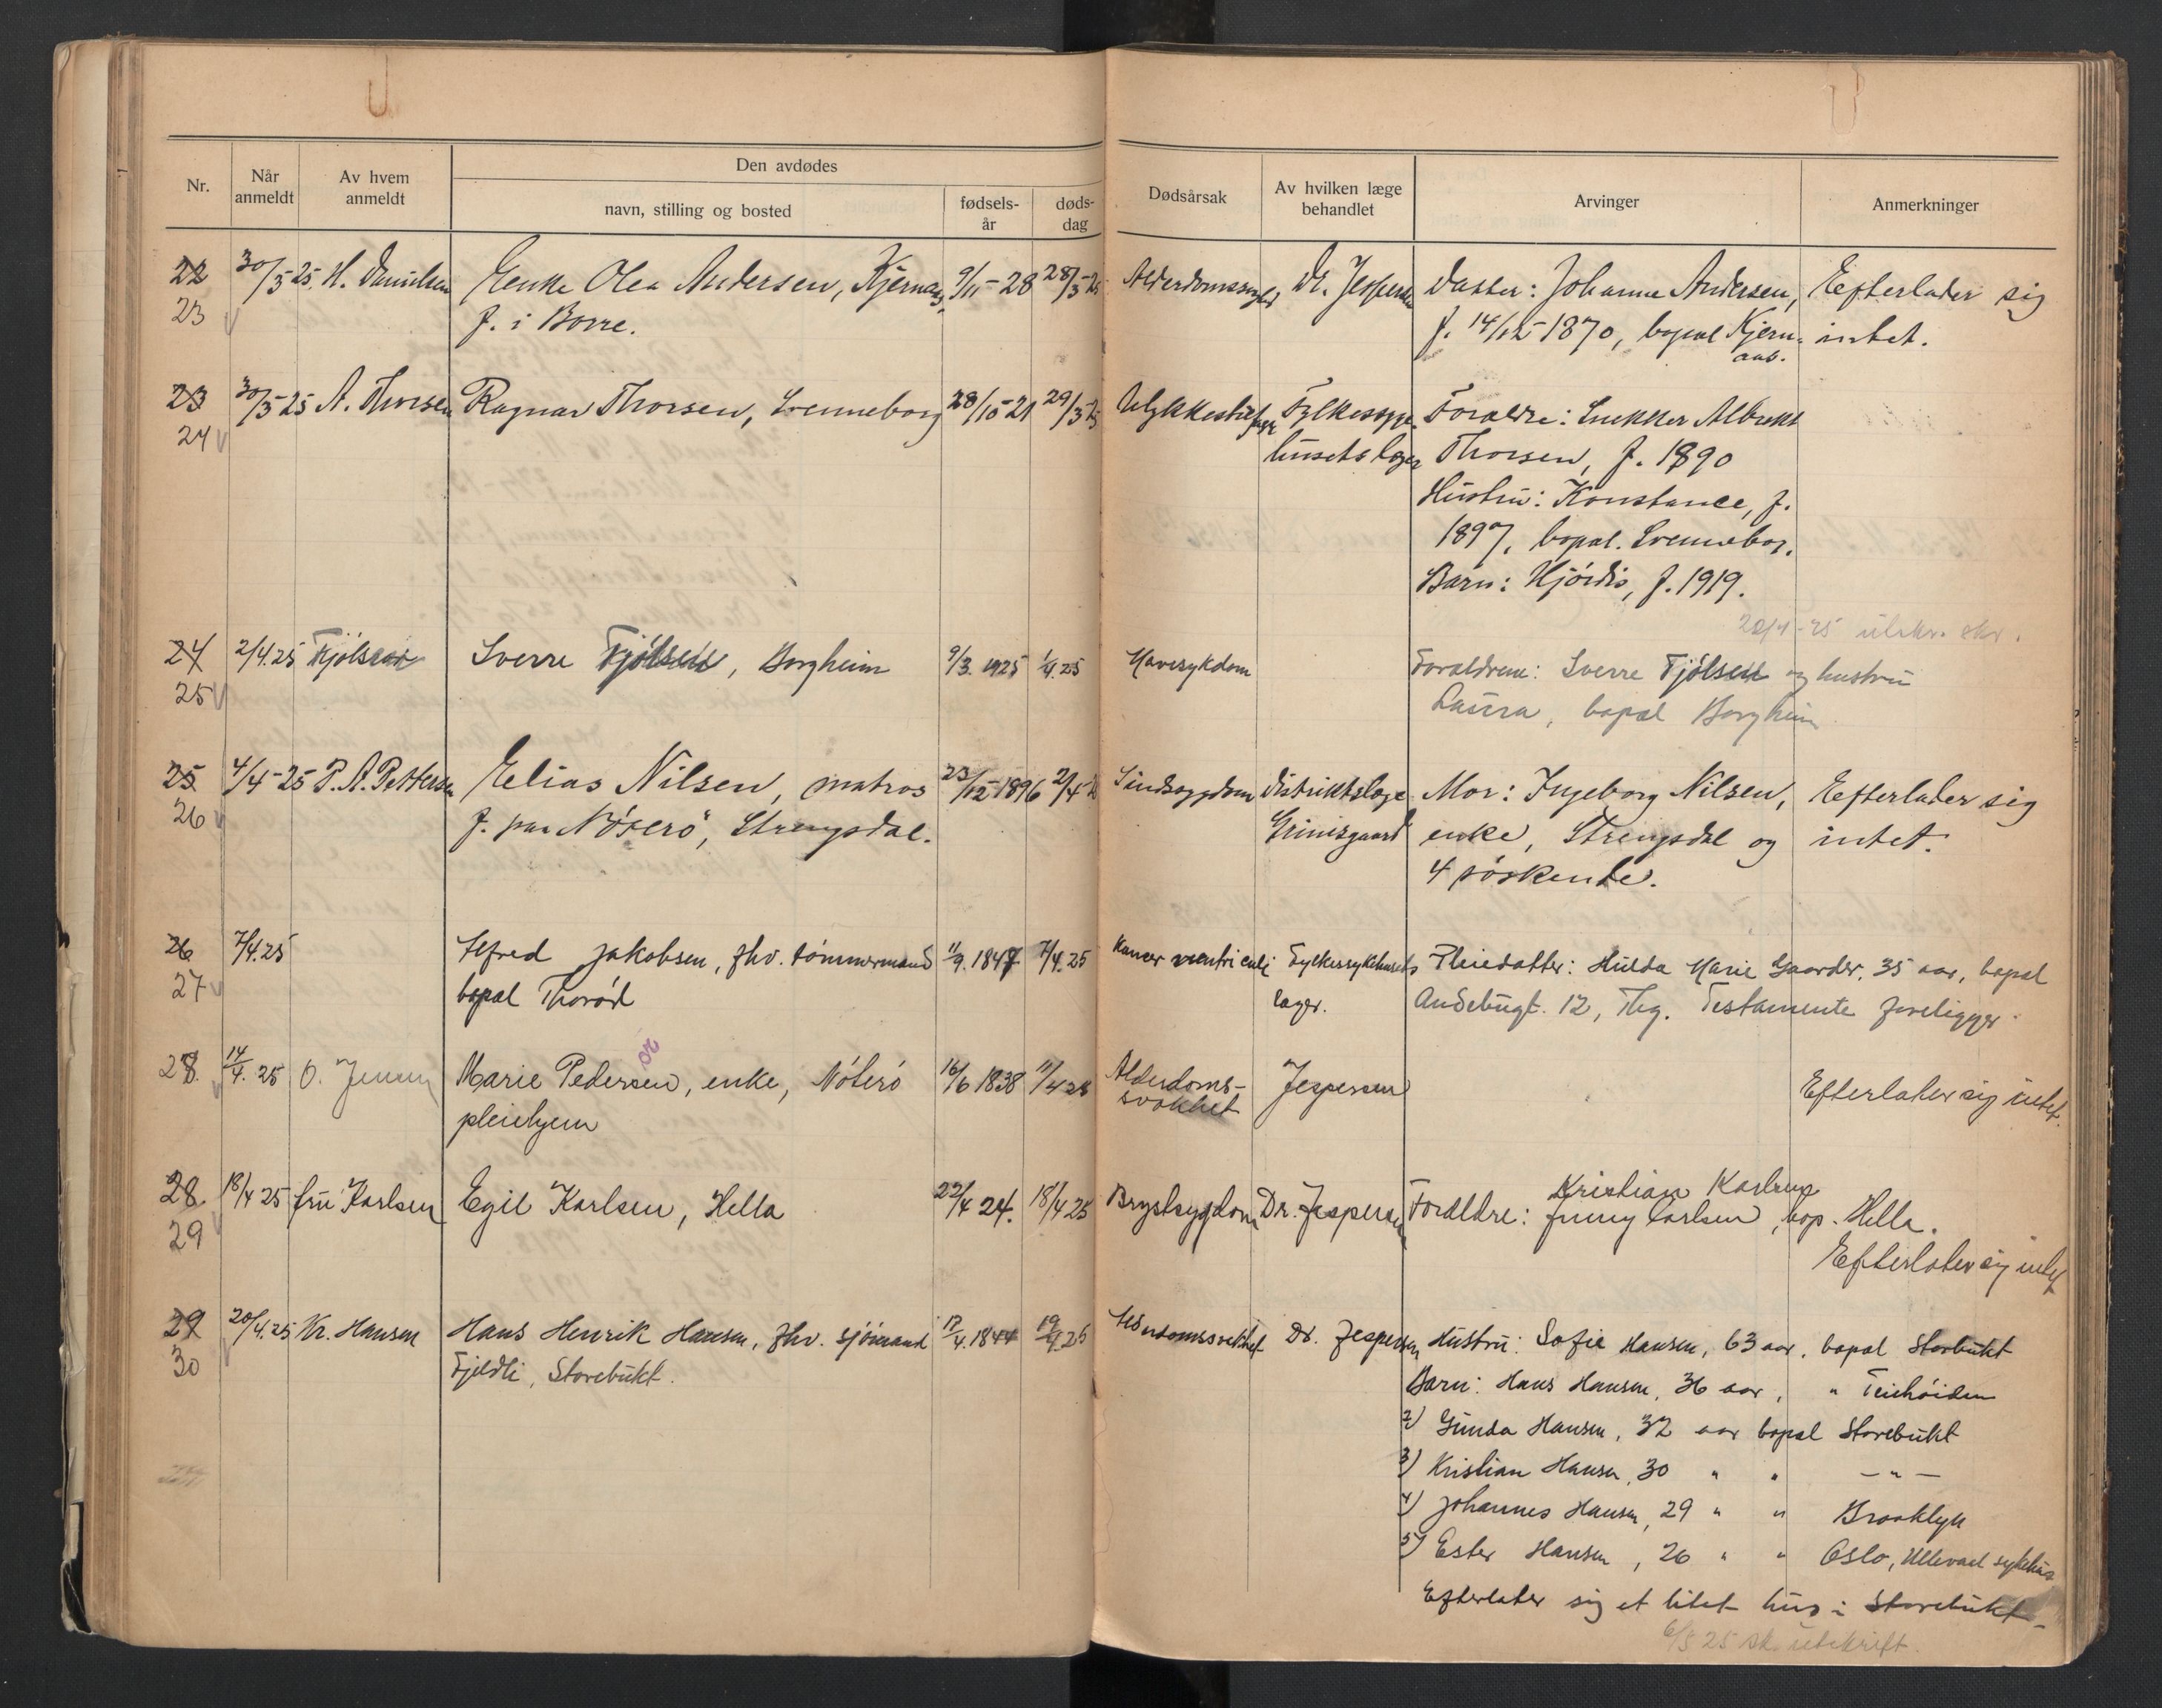 Nr.
Når anmeldt
Av hvem anmeldt
Den avdødes
navn, stilling og bosted
fødsels-år
døds-dag
Dødsårsak
Av hvilken læge behandlet
Arvinger
Anmerkninger
22 30/3-25 H. Danielsen Enke Olea Andersen, Kjernaas, 9/11-28 28/3-25 Alderdomssvaghed Dr. Jespersen Datter: Johanne Andersen, Efterlader sig
23 f. i Borre. f. 14/12-1870, bopæl Kjern- intet.
aas.
23 30/3-25 A. Thorsen Ragnar Thorsen, Svenneborg 28/10-21 29/3-25 Ulykkestilfælde Fylkessyge- Forældre: Snekker Albrekt
24 husets læger Thorsen, f. 1890
Hustru: Konstance, f.
1897, bopæl. Svenneborg.
Barn: Hjördis, f. 1919.
20/4-25 utskr. skr.
24 2/4.25 Fjölsen Sverre Fjölsen, Borgheim 9/3. 1925 1/4.25 Mavesykdom Foræeldrene: Sverre Fjölsen og hustru
25 Laura, bopæl Borgheim
25 4/4-25 P. A. Pettersen Elias Nilsen, matros 23/12-1896 2/4-25 Sindssygdom Distriktslæge Mor: Ingeborg Nilsen, Efterlader sig
26 f. paa Nöterö, Strengsdal. Grimsgaard enke, Strengsdal og intet.
4 söskende.
26 7/4.25 Alfred Jakobsen, fhv. tömmermand 11/9. 1847 7/4.25 Kancer ventriculi Fylkessykehusets Pleiedatter: Hulda Marie Gaarder, 35 aar, bopæl
27 bopæl Thoröd læger. Andebugt. 12, Tbg. Testamente foreligger.
28. 14/4. 25 O. Jensen Marie Pedersen, enke, Nöterö 16/6 1838 11/4 25 Alderdoms- Jespersen Efterlater sig intet.
pleiehjem svakhet
28. 18/4 25 fru Karlsen Egil Karlsen, Hella 22/4 24. 18/4 25 Brystsygdom Dr. Jespersen Forældre: Kristian Karlsen
29 Jenny Carlsen, bop. Hella.
Efterlater sig intet
29 20/4.25 Kr. Hansen Hans Henrik Hansen, fhv. sjömand 17/4. 1844 19/4.25 Alderdomssvakhet Dr. Jespersen Hustru: Sofie Hansen, 63 aar, bopæl Storbukt
30 Fjeldli, Storebukt. Barn: Hans Hansen, 36 aar, " Teiehöiden
2) Gunda Hansen, 32 aar bopæl Storebukt
3) Kristian Hansen, 30 " " — " —
4) Johannes Hansen, 29 " " Brooklyn
5) Ester Hansen, 26 " " Oslo, Ullevaal sykehus
Efterlater sig et litet hus i Storebukt.
6/5 25 sk. utskrift.